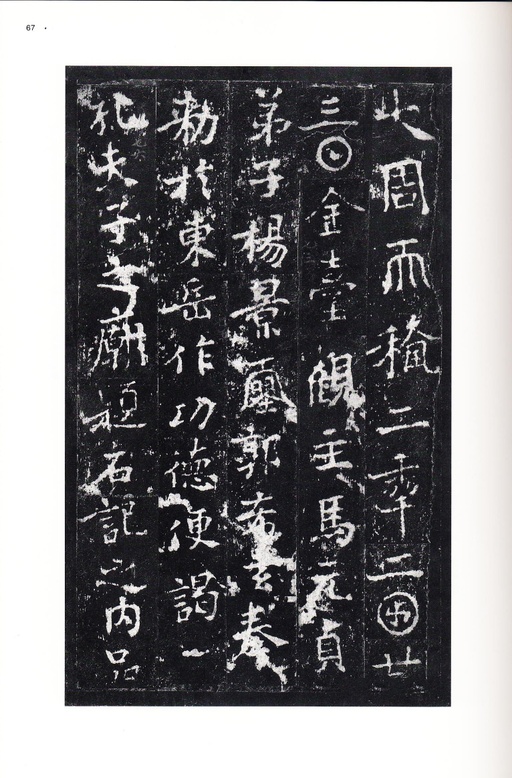 67
大周𠀑𥠢二𠡦二𠥱廿
三𡆠金臺觀主馬元貞
弟子楊景𡔈郭希玄奉
勅於東岳作功德便謁
孔夫子之廟題石記之内品